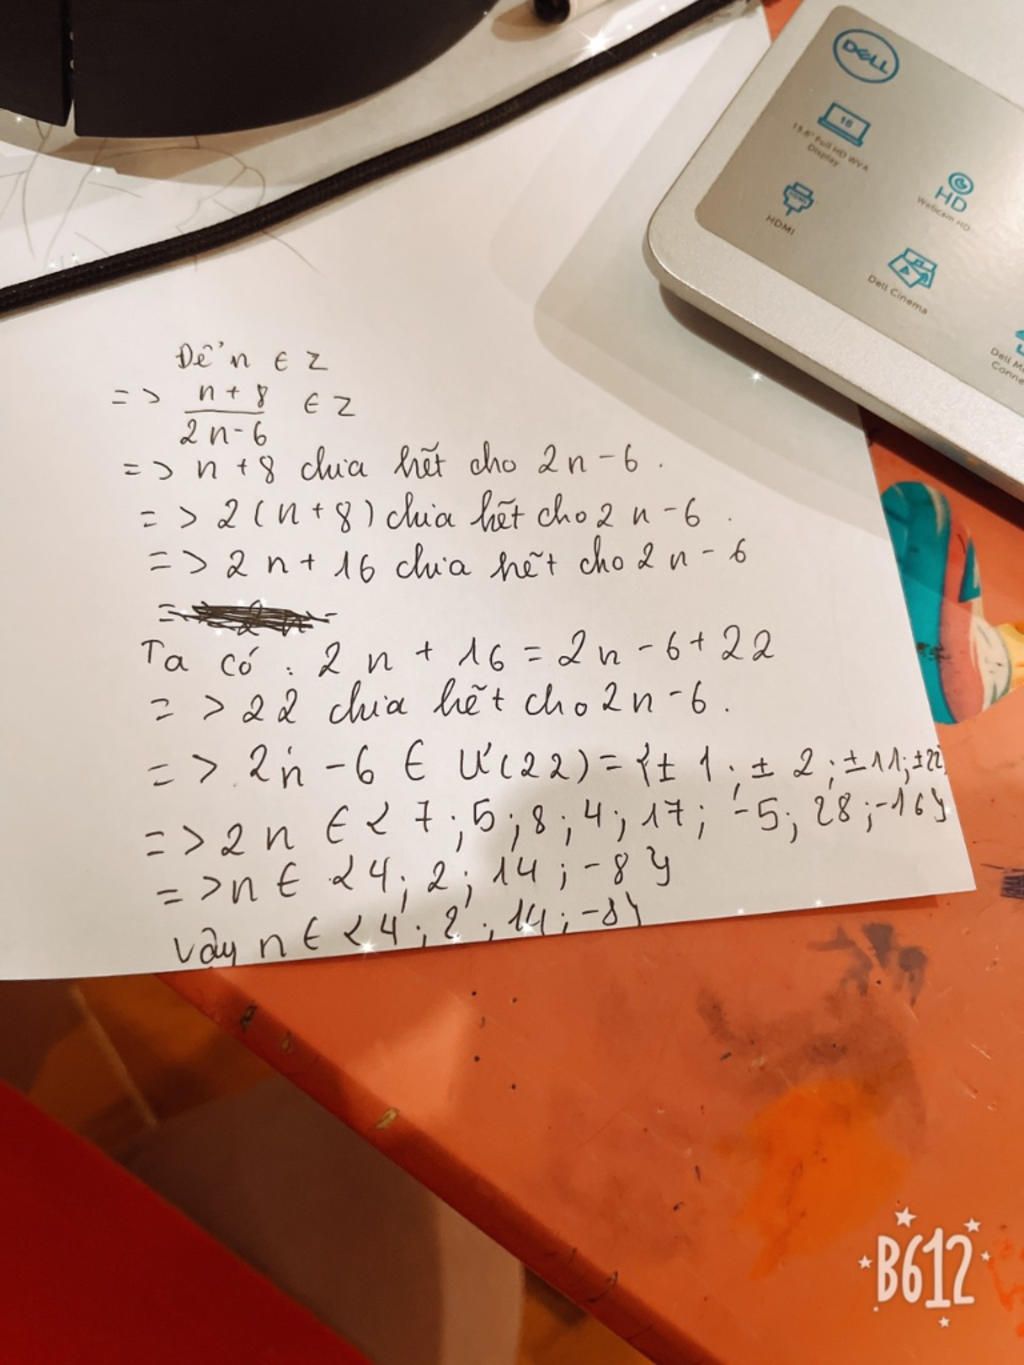 DELL
15.6" Full HD WVA
Display
HDMI
HD
Webcam HD
Dell Cinema
Để n ∈ Z
=> n + 8 / 2n - 6 ∈ Z
=> n + 8 chia hết cho 2n - 6.
=> 2(n + 8) chia hết cho 2n - 6.
=> 2n + 16 chia hết cho 2n - 6
Ta có : 2n + 16 = 2n - 6 + 22
=> 22 chia hết cho 2n - 6.
=> 2n - 6 ∈ Ư(22) = {± 1; ± 2; ± 11; ± 22
=> 2n ∈ {7; 5; 8; 4; 17; -5; 28; -16}
=> n ∈ {4; 2; 14; -8}
Vậy n ∈ {4; 2; 14; -8}
B612